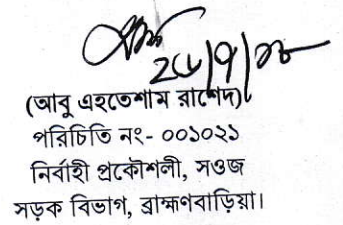 (আবু এহতেশাম রাশেদ)
পরিচিতি নং- ০০১০২১
নির্বাহী প্রকৌশলী, সওজ
সড়ক বিভাগ, ব্রাহ্মণবাড়িয়া।